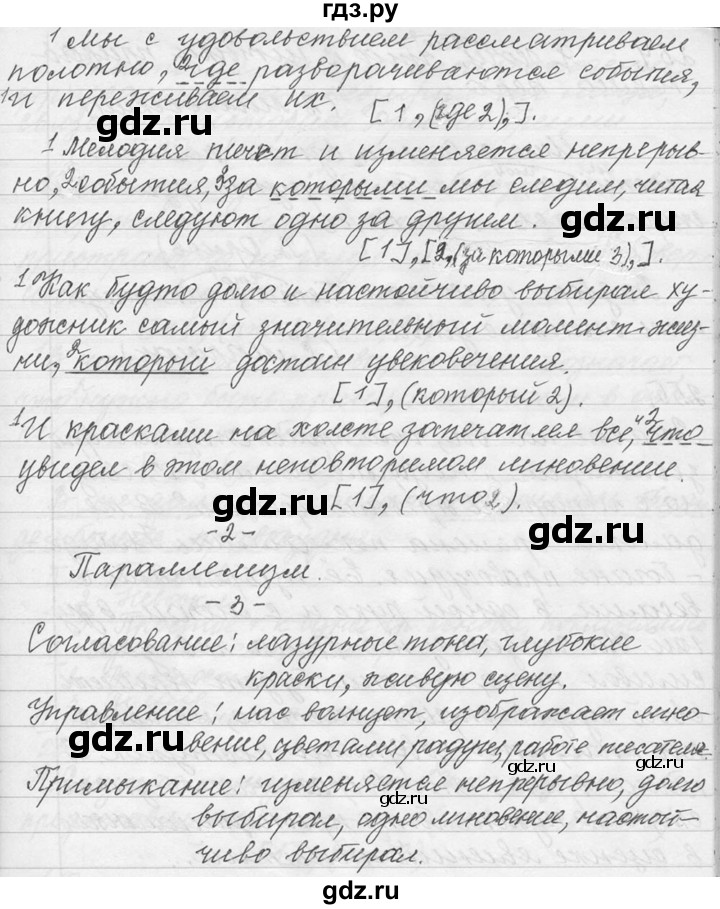 гдз.ру
1 Мы с удовольствием рассматриваем
полотно, 2 где разворачиваются события,
1 и переживаем их. [1, (где 2), ].
gdz.ru
1 Мелодия течет и изменяется непрерыв-
но, 2 события, 3 за которыми мы следим, читая
книгу, следуют одно за другим.
[1], [2, (за которыми 3), ].
1 Как будто долго и настойчиво выбирал ху-
дожник самый значительный момент жиз-
ни, 2 который достоин увековечения.
gdz.ru
[1], (который 2).
1 И красками на холсте запечатлел все, 2 что
увидел в этом неповторимом мгновении.
gdz.ru
[1], (что 2).
gdz.ru
-2-
Параллелизм.
-3-
Согласование: лазурные тона, глубокие
краски, живую сцену.
Управление: нас волнует, изображает мгно-
gdz.ru
вение, цветами радуги, работе писателя.
Примыкание: изменяется непрерывно, долго
gdz.ru
выбирал, одно мгновение, настой-
gdz.ru
чиво выбирал.
gdz.ru